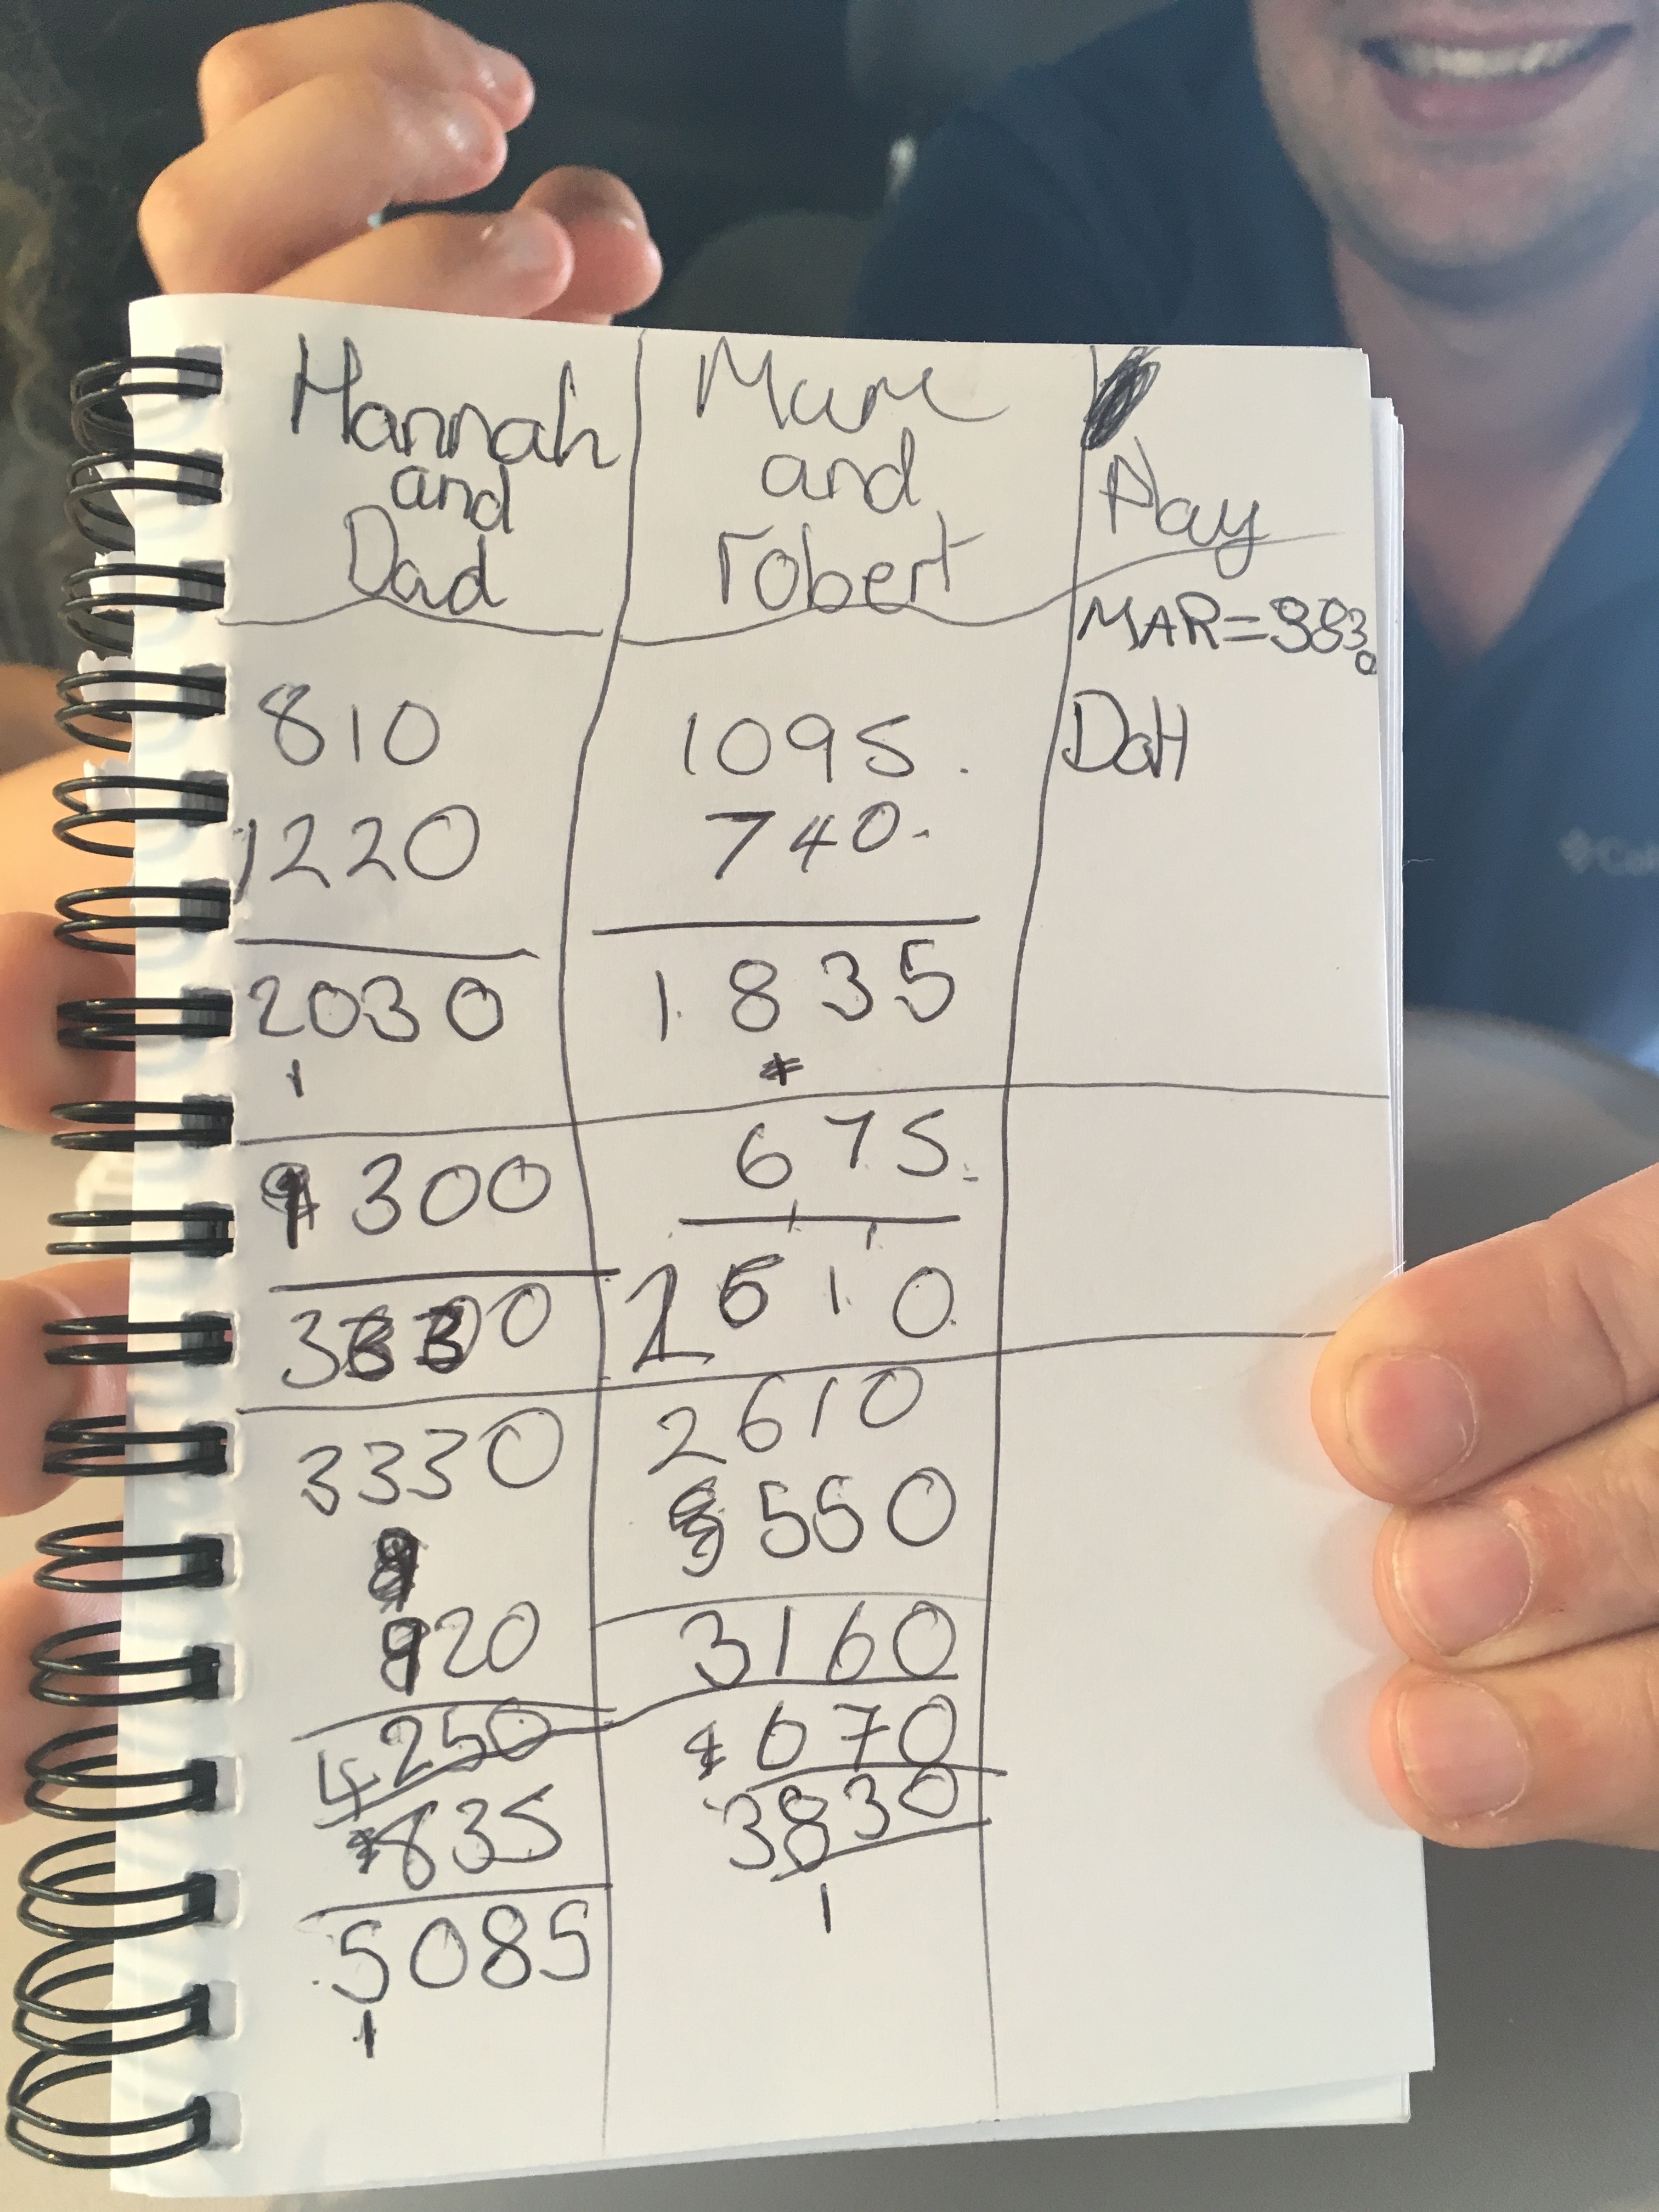 Hannah
and
Dad
810
1220
2030
1
1300
3330
3330
920
4250
835
5085
1
and
robert
1095.
740.
1835
675
1 1
2610
2610
550
3160
670
3830
1
MAR=3830
DaH